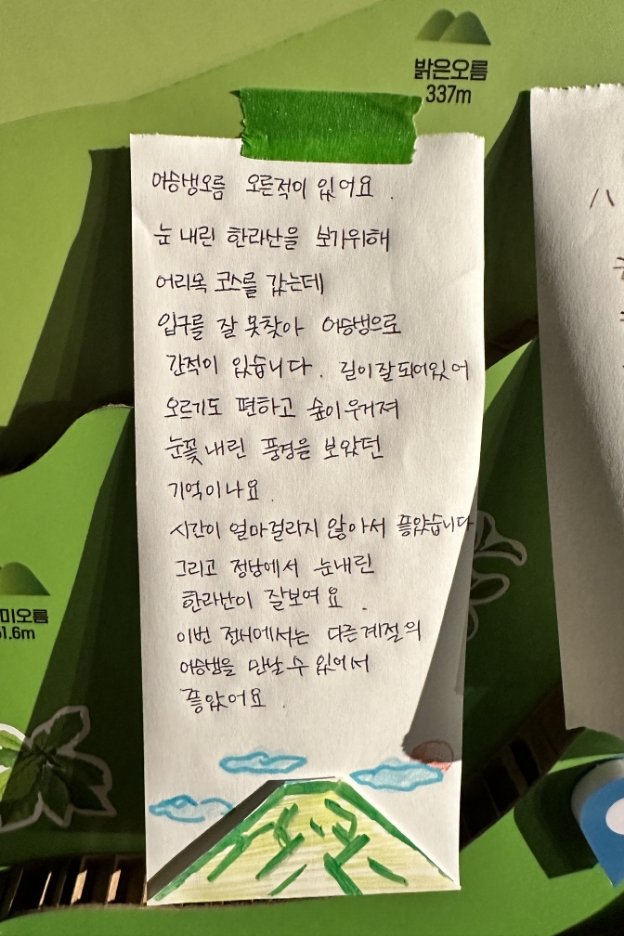 밝은오름
337m
어승생오름 오른적이 있어요.
눈 내린 한라산을 보기위해
어리목 코스를 갔는데
입구를 잘 못찾아 어승생으로
간적이 있습니다. 길이 잘 되어있어
오르기도 편하고 숲이 우거져
눈꽃 내린 풍경을 보았던
기억이나요.
시간이 얼마걸리지 않아서 좋았습니다
그리고 정상에서 눈내린
한라산이 잘보여요.
이번 전시에서는 다른계절의
어승생을 만날 수 있어서
좋았어요.
미오름
1.6m